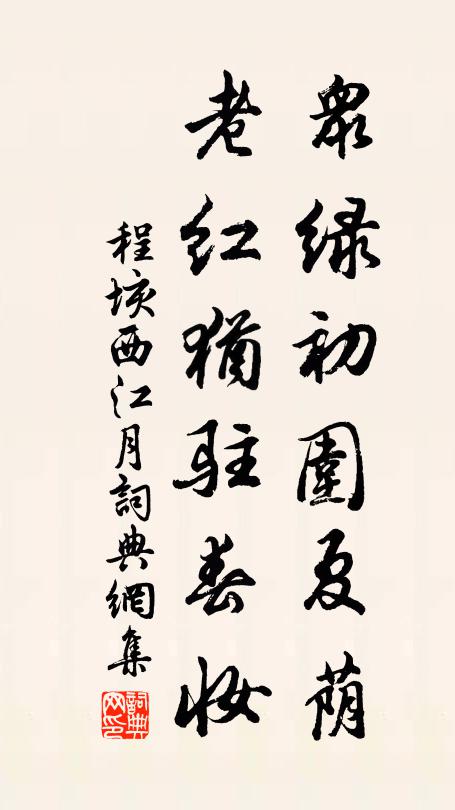 眾綠初圍夏荫
老紅猶駐春妝
程垓西江月詞典網集
詞典网印